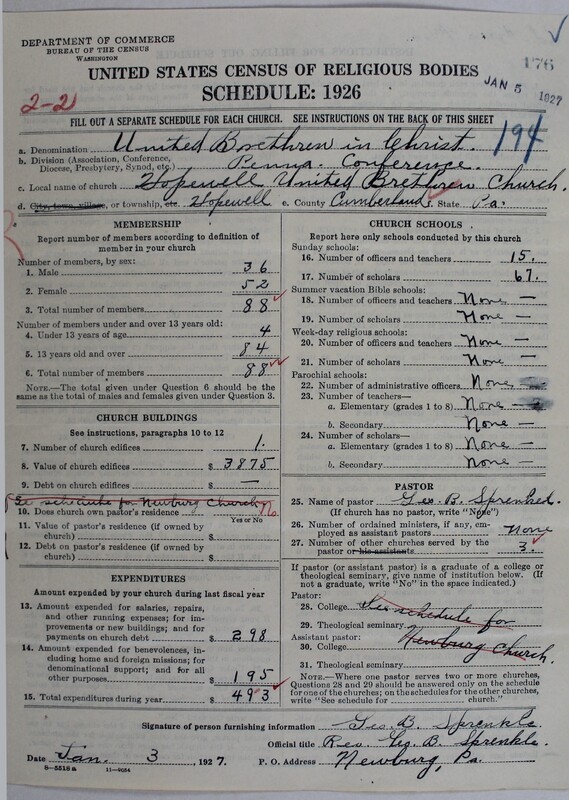 DEPARTMENT OF COMMERCE
BUREAU OF THE CENSUS
WASHINGTON
176
JAN 5 1927
UNITED STATES CENSUS OF RELIGIOUS BODIES
SCHEDULE: 1926
2-2
FILL OUT A SEPARATE SCHEDULE FOR EACH CHURCH. SEE INSTRUCTIONS ON THE BACK OF THIS SHEET
194
a. Denomination United Brethren in Christ.
b. Division (Association, Conference, Diocese, Presbytery, Synod, etc.) Penna. Conference.
c. Local name of church Hopewell United Brethren Church.
d. City, town, village, or township, etc. Hopewell e. County Cumberland f. State Pa.
MEMBERSHIP
Report number of members according to definition of
member in your church
Number of members, by sex:
1. Male 36
2. Female 52
3. Total number of members 88
Number of members under and over 13 years old:
4. Under 13 years of age 4
5. 13 years old and over 84
6. Total number of members 88
NOTE.—The total given under Question 6 should be
the same as the total of males and females given under Question 3.
CHURCH BUILDINGS
See instructions, paragraphs 10 to 12
7. Number of church edifices 1.
8. Value of church edifices $ 3875
9. Debt on church edifices $ —
See schedule for Newburg Church No
10. Does church own pastor's residence
Yes or No
11. Value of pastor's residence (if owned by
church) $
12. Debt on pastor's residence (if owned by
church) $
EXPENDITURES
Amount expended by your church during last fiscal year
13. Amount expended for salaries, repairs,
and other running expenses; for im-
provements or new buildings; and for
payments on church debt $ 298
14. Amount expended for benevolences, in-
cluding home and foreign missions; for
denominational support; and for all
other purposes $ 195
15. Total expenditures during year $ 493
CHURCH SCHOOLS
Report here only schools conducted by this church
Sunday schools:
16. Number of officers and teachers 15.
17. Number of scholars 67.
Summer vacation Bible schools:
18. Number of officers and teachers None —
19. Number of scholars None —
Week-day religious schools:
20. Number of officers and teachers None —
21. Number of scholars None —
Parochial schools:
22. Number of administrative officers None —
23. Number of teachers—
a. Elementary (grades 1 to 8) None —
b. Secondary None —
24. Number of scholars—
a. Elementary (grades 1 to 8) None —
b. Secondary None —
PASTOR
25. Name of pastor Geo. B. Sprenkel.
(If church has no pastor, write "None")
26. Number of ordained ministers, if any, em-
ployed as assistant pastors None
27. Number of other churches served by the
pastor or his assistants 3.
If pastor (or assistant pastor) is a graduate of a college or
theological seminary, give name of institution below. (If
not a graduate, write "No" in the space indicated.)
Pastor:
28. College See schedule for
29. Theological seminary
Assistant pastor:
30. College Newburg Church.
31. Theological seminary
NOTE.—Where one pastor serves two or more churches,
Questions 28 and 29 should be answered only on the schedule
for one of the churches; on the schedules for the other churches,
write "See schedule for church."
Signature of person furnishing information Geo. B. Sprenkle.
Official title Rev. Geo. B. Sprenkle.
Date Jan. 3, 1927. P. O. Address Newburg, Pa.
8—5518 a 11—9054